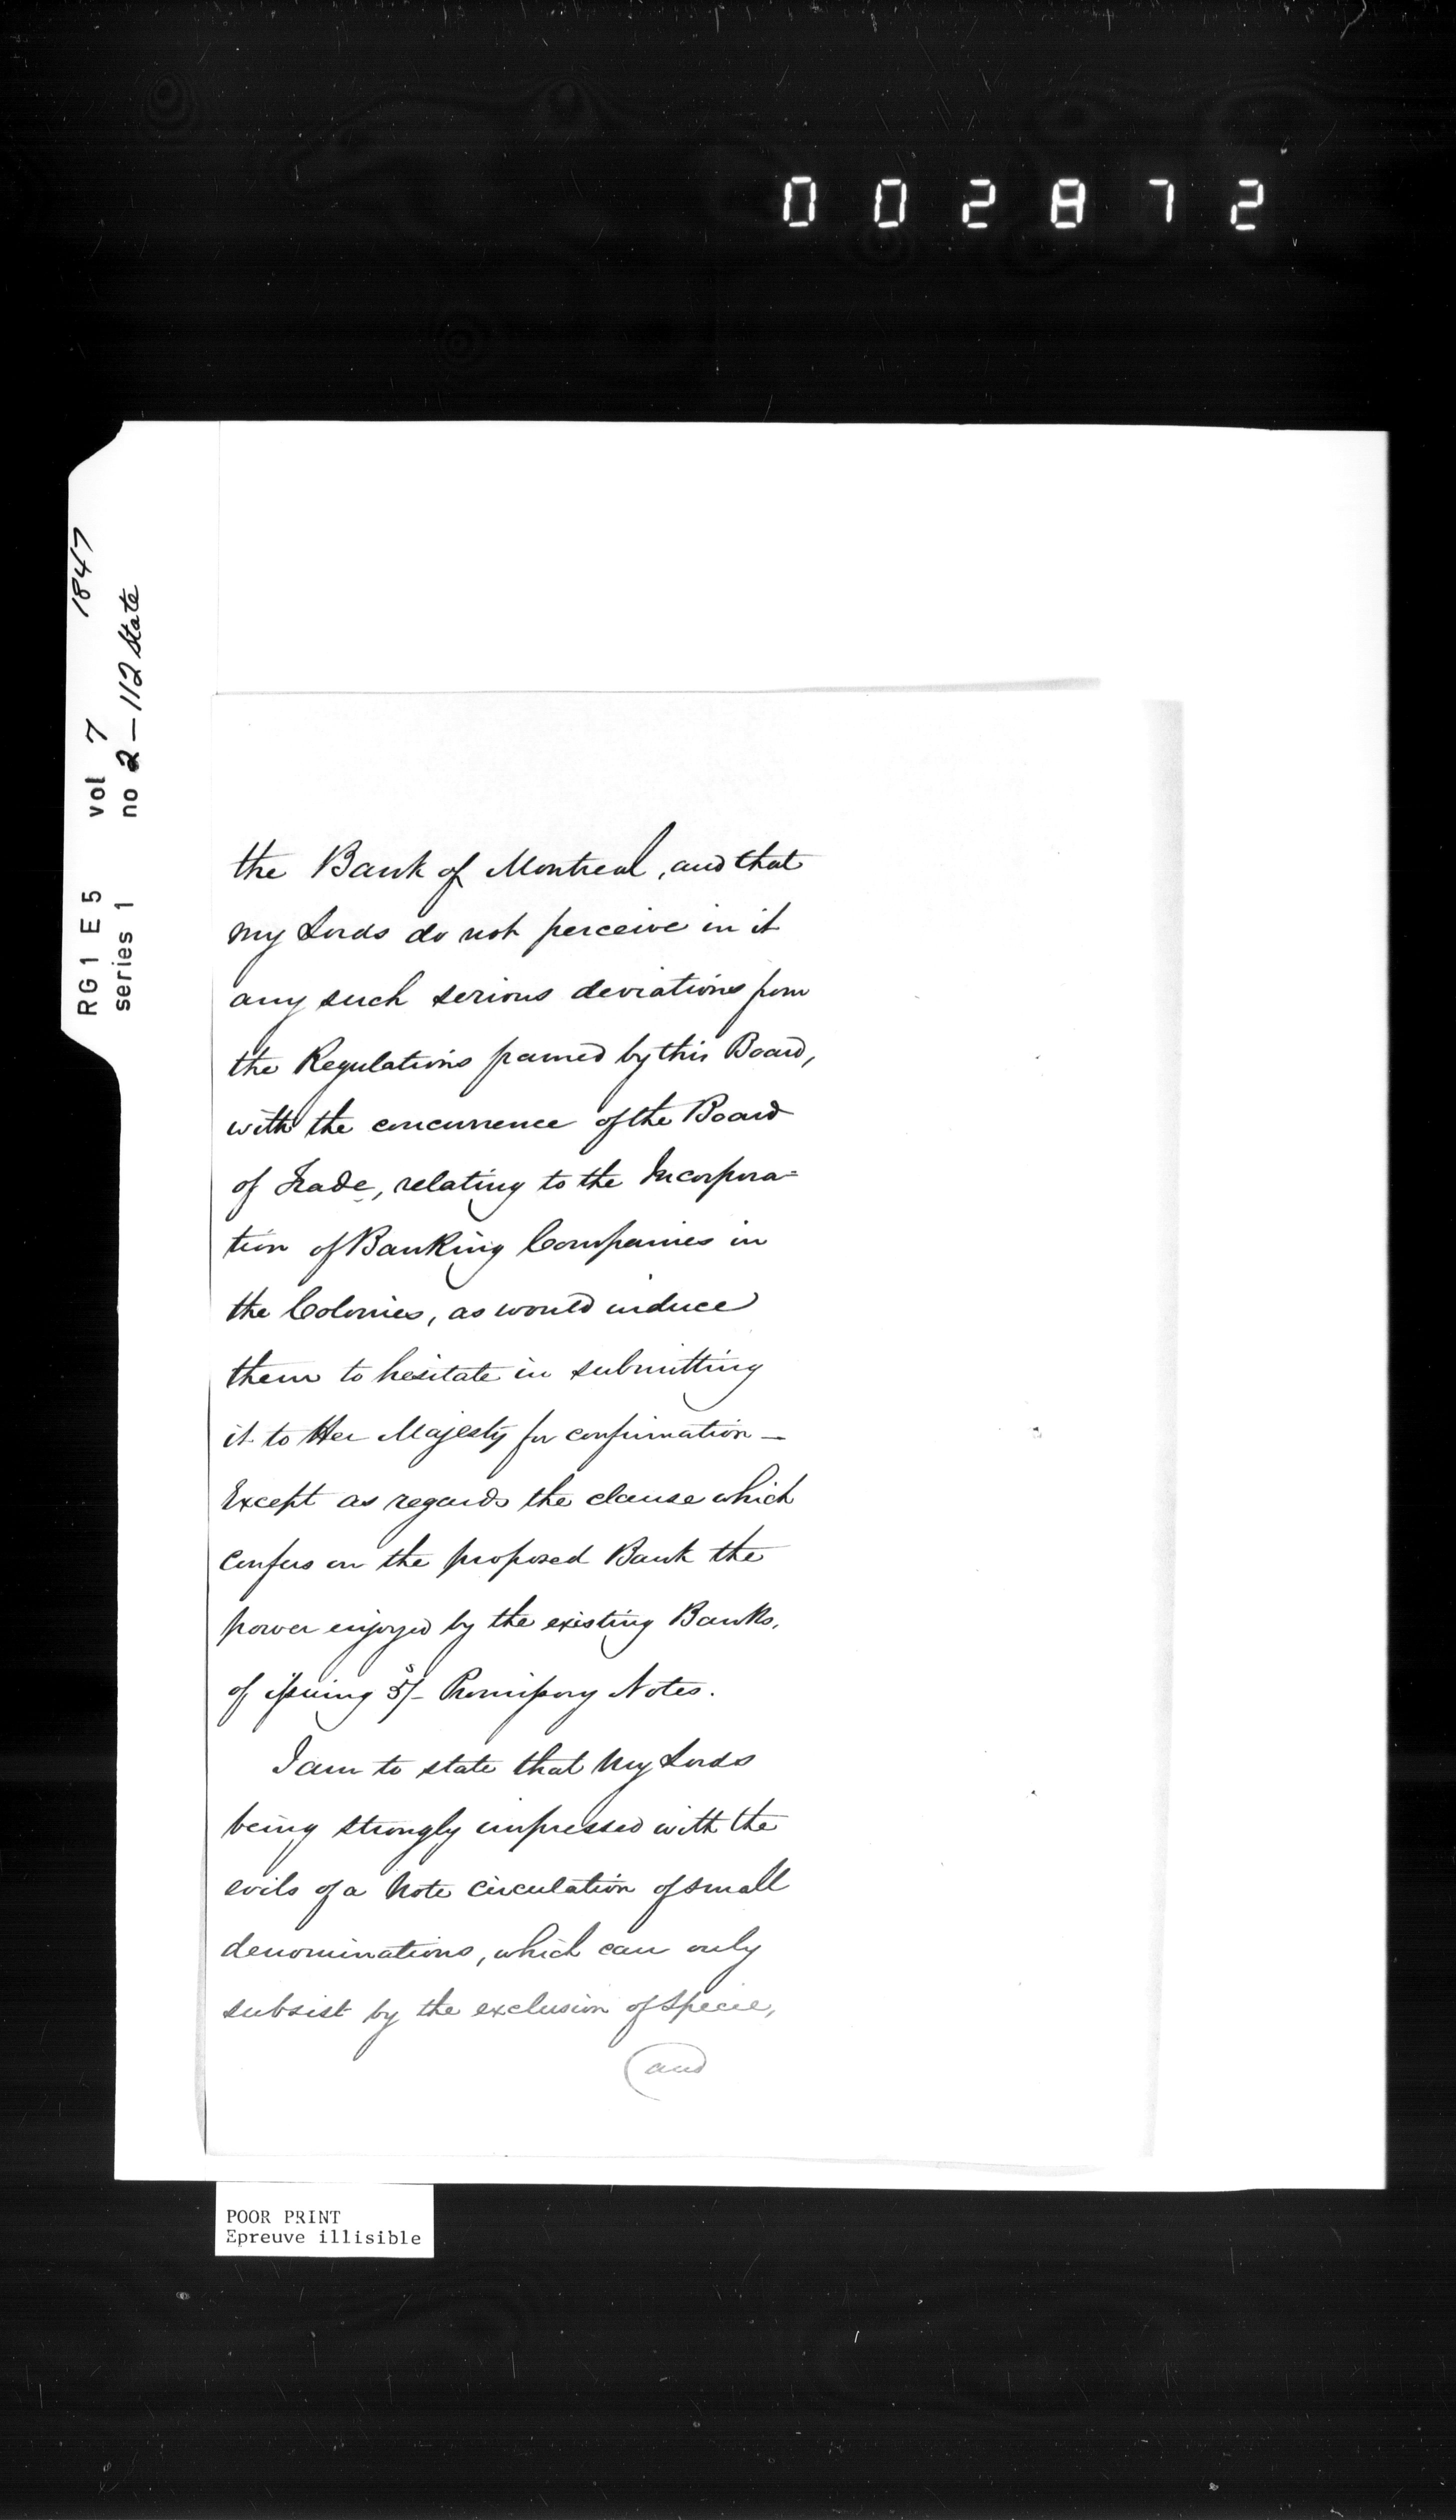 002872
RG 1 E 5 vol 7 1847
series 1 no 2 — 112 State
the Bank of Montreal, and that
My Lords do not perceive in it
any such serious deviations from
the Regulations framed by this Board,
with the concurrence of the Board
of Trade, relating to the Incorpora=
tion of Banking Companies in
the Colonies, as would induce
them to hesitate in submitting
it to Her Majesty for confirmation —
Except as regards the clause which
confers on the proposed Bank the
power enjoyed by the existing Banks,
of issuing 5s/- Promissory Notes.
I am to state that My Lords
being strongly impressed with the
evils of a Note circulation of small
denominations, which can only
subsist by the exclusion of Specie,
and
POOR PRINT
Epreuve illisible